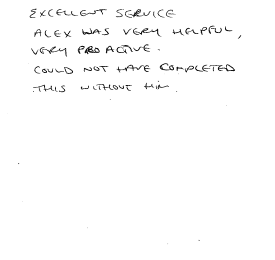 EXCELLENT SERVICE
ALEX WAS VERY HELPFUL,
VERY PRO ACTIVE.
COULD NOT HAVE COMPLETED
THIS WITHOUT HIM.